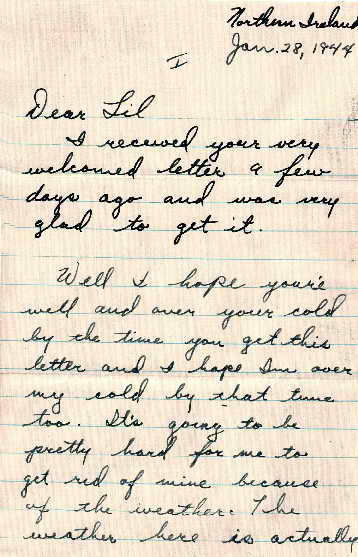 Northern Ireland
Jan. 28, 1944
I
Dear Lil
I received your very
welcomed letter a few
days ago and was very
glad to get it.
Well I hope you're
well and over your cold
by the time you get this
letter and I hope I'm over
my cold by that time
too. It's going to be
pretty hard for me to
get rid of mine because
of the weather. The
weather here is actually